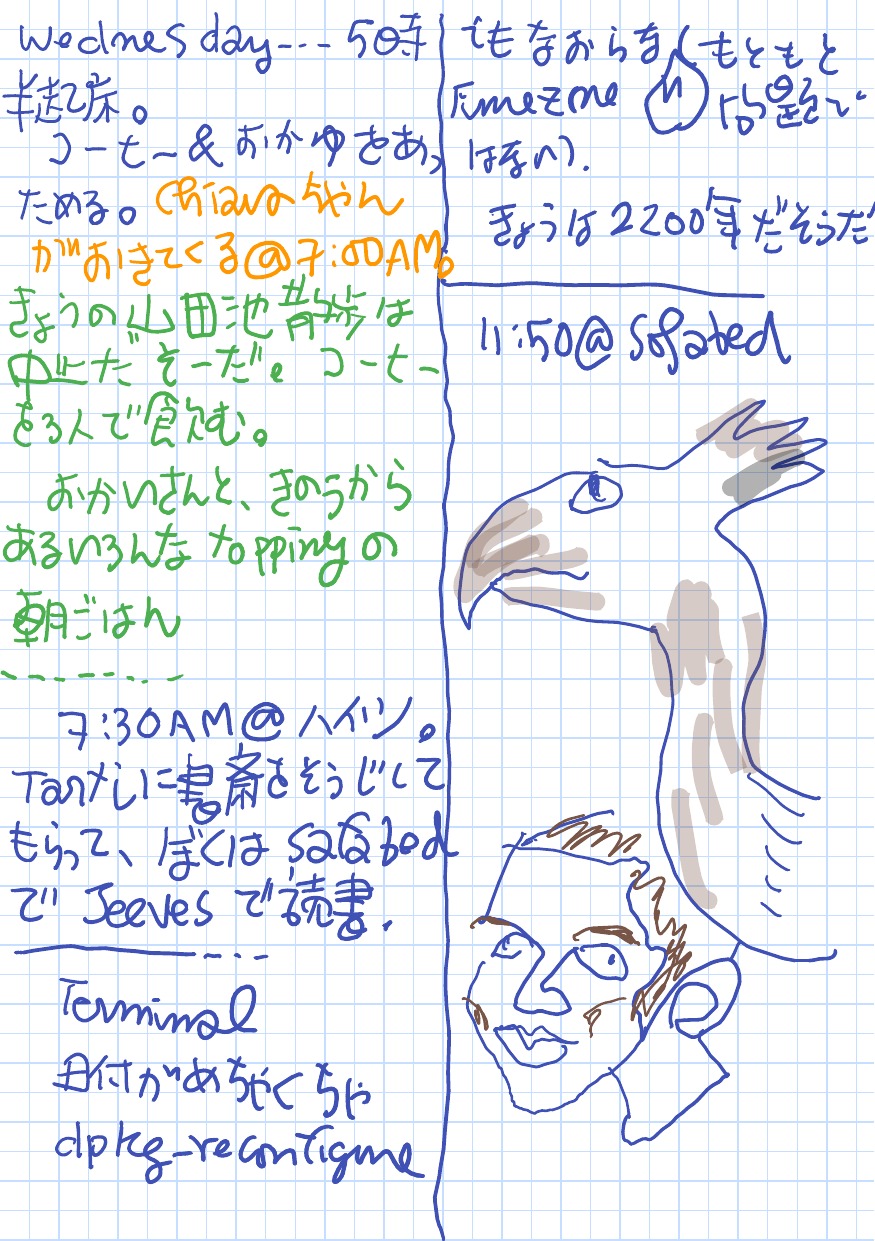 Wednesday--- 5時
半起床。
コーヒー&おかゆをあっ
ためる。Chiaraちゃん
がおきてくる@7:00AM。
きょうの山田池散歩は
中止だそーだ。コーヒー
を3人で飲む。
おかいさんと、きのうから
あるいろんなtoppingの
朝ごはん
7:30AM@ハイツ。
に書斎をそうじして
もらって、ぼくは sofa bed
で Jeeves で読書.
Terminal
日付がめちゃくちゃ
dpkg-reconfigure
でもなおらを
timezone
もともと
問題で
はない.
きょうは2200年だそうだ
11:50@sofabed